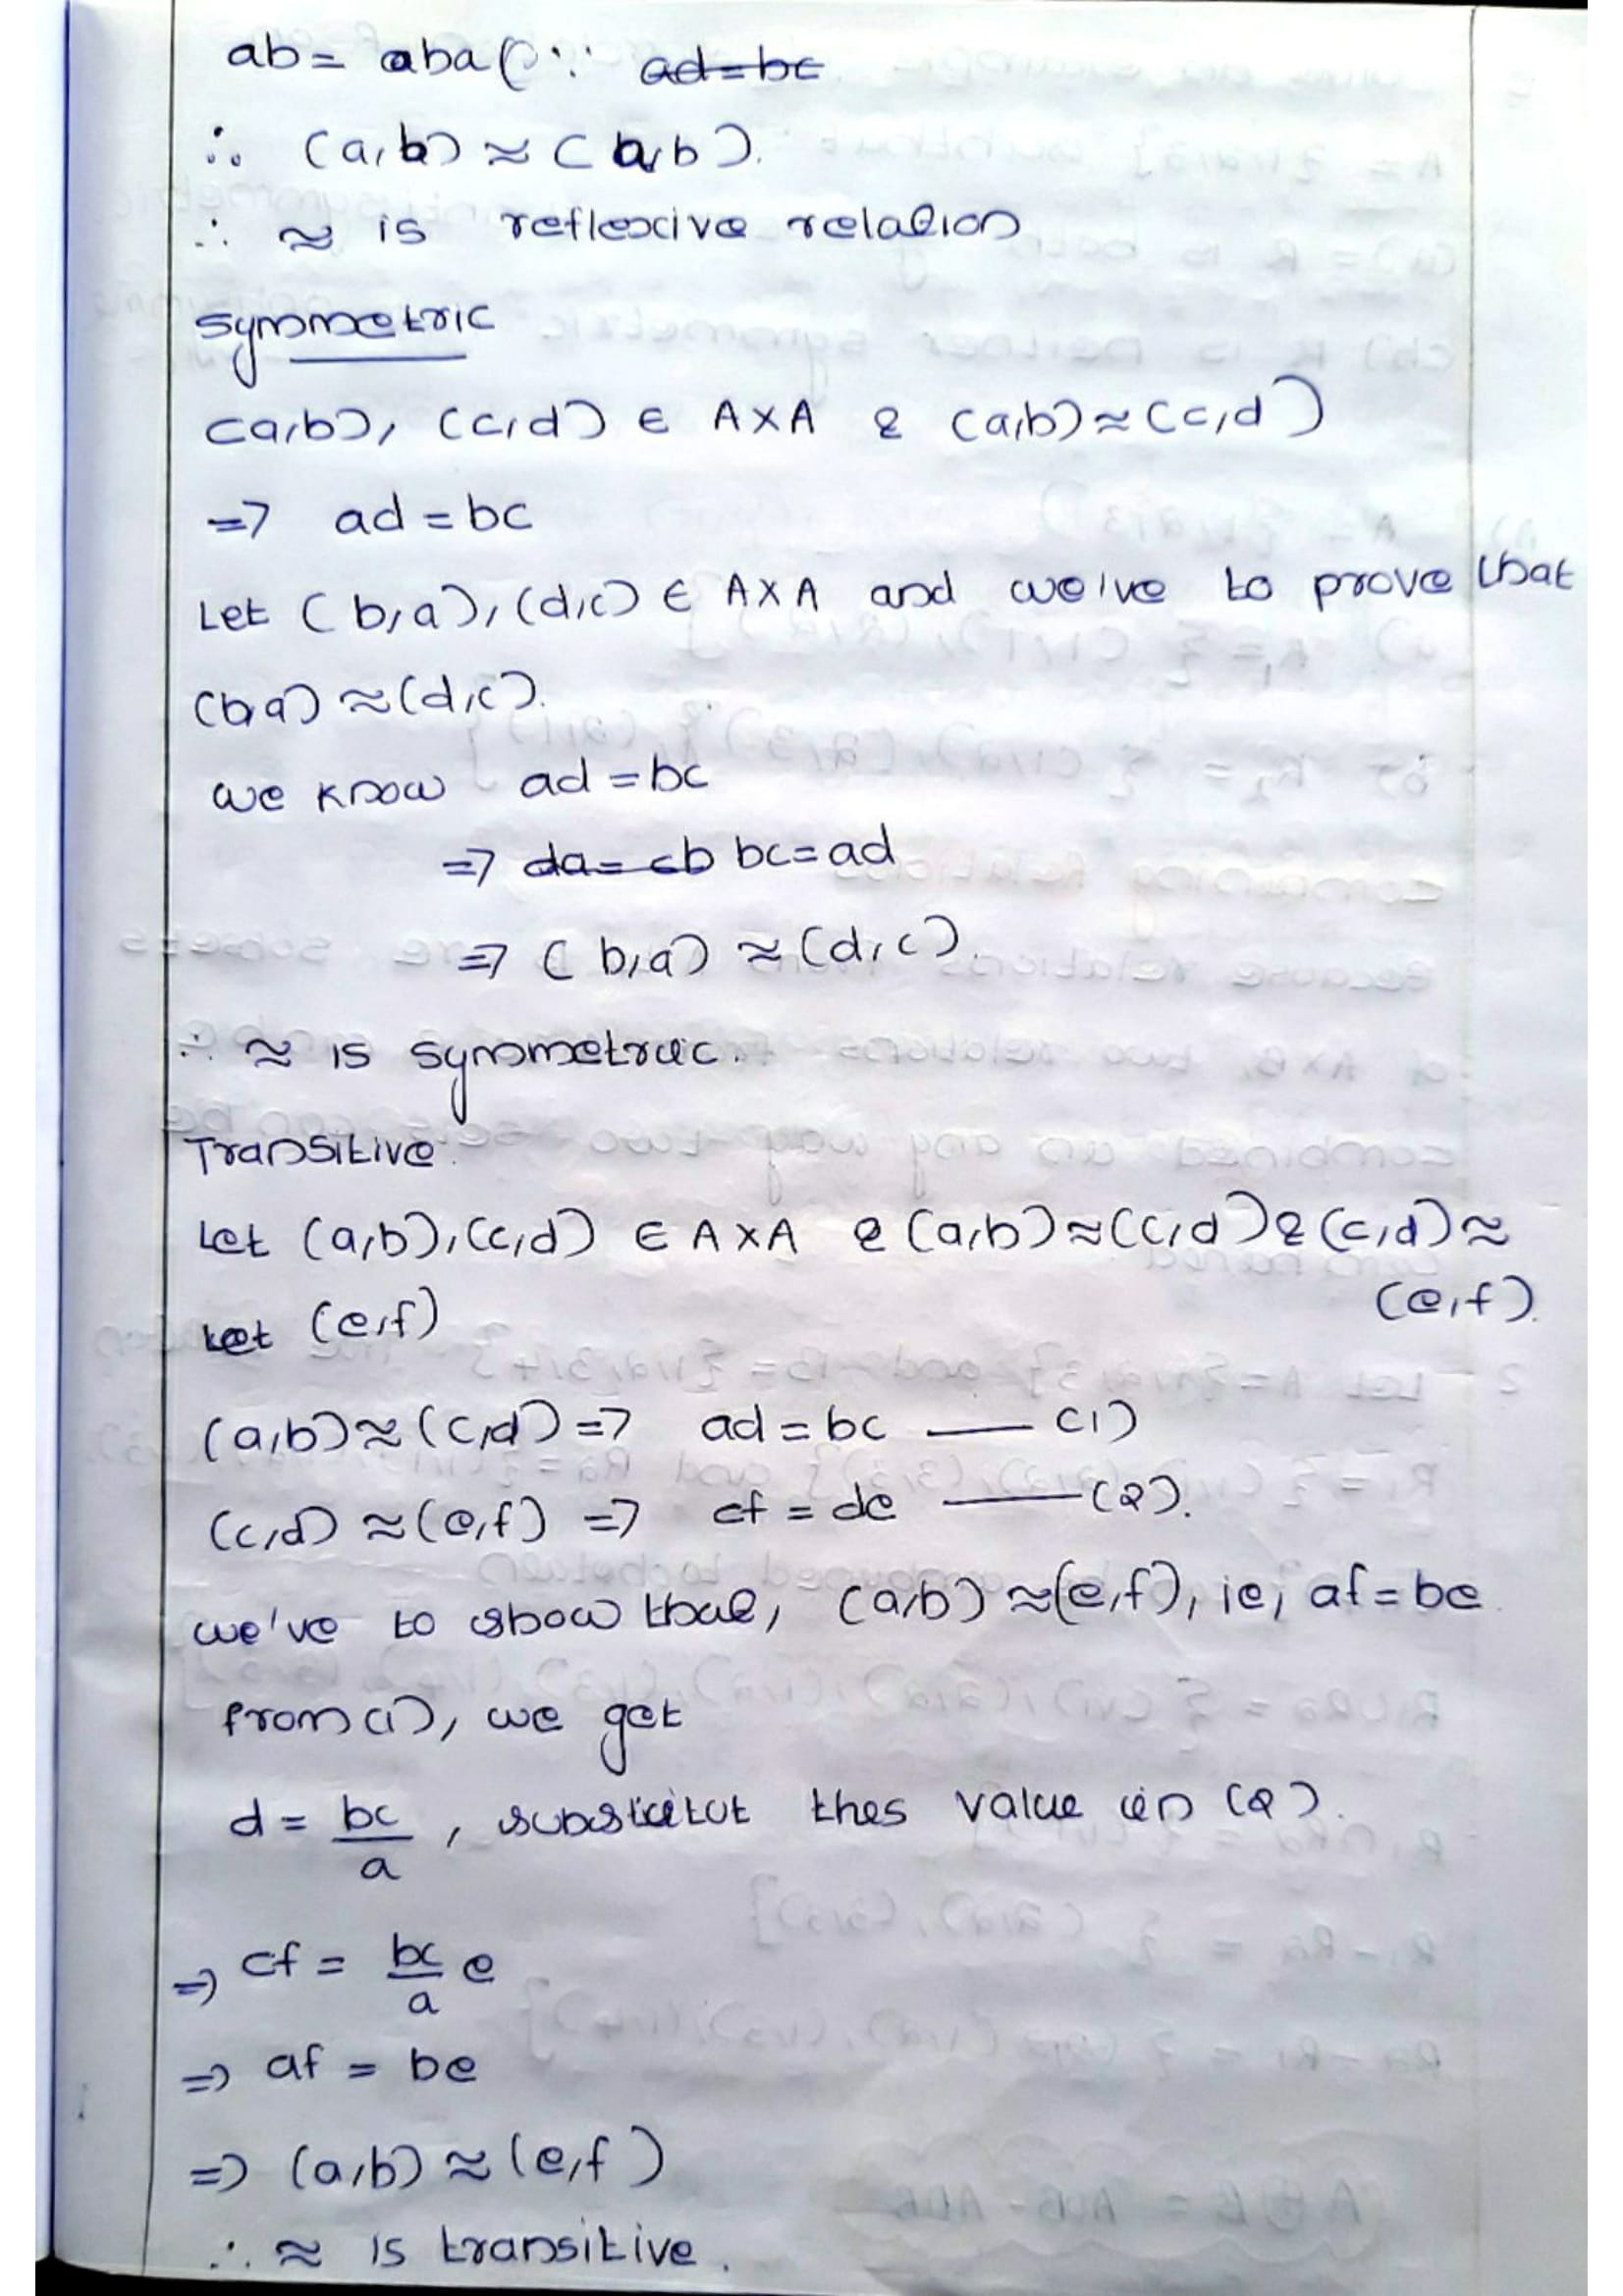 ab = aba (∵ ad = bc
∴ (a,b) ≈ (a,b).
∴ ≈ is reflexive relation
Symmetric
(a,b), (c,d) ∈ A×A & (a,b) ≈ (c,d)
=> ad = bc
Let (b,a), (d,c) ∈ A×A and we've to prove that
(b,a) ≈ (d,c).
we know ad = bc
=> da = cb bc = ad
=> (b,a) ≈ (d,c).
∴ ≈ is symmetric.
Transitive.
Let (a,b), (c,d) ∈ A×A & (a,b) ≈ (c,d) & (c,d) ≈
(e,f).
Let (e,f)
(a,b) ≈ (c,d) => ad = bc —— (1)
(c,d) ≈ (e,f) => cf = de —— (2).
we've to show that, (a,b) ≈ (e,f), ie, af = be.
from (1), we get
d = bc/a, substitut this value in (2).
=> cf = bc/a e
=> af = be
=> (a,b) ≈ (e,f)
∴ ≈ is transitive.